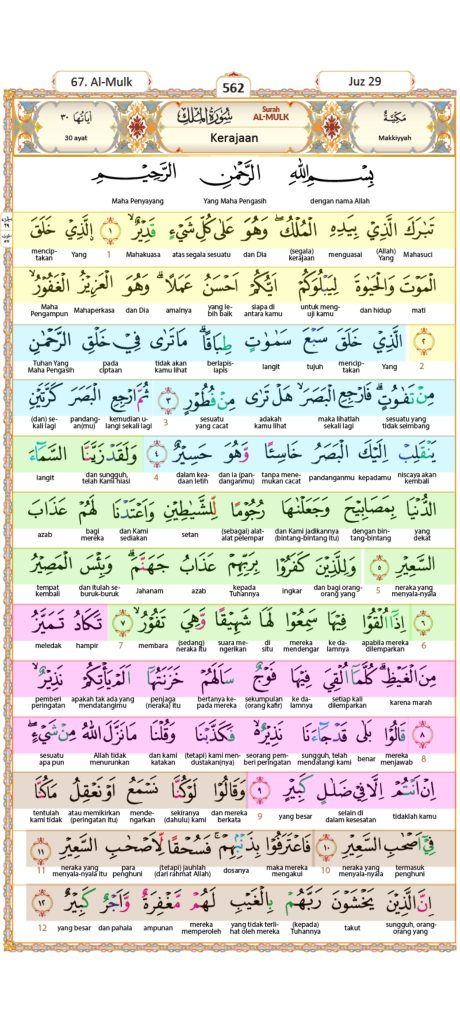 67. Al-Mulk
562
Juz 29
اٰيَاتُهَا ٣٠
سُوْرَةُ الْمُلْكِ
Surah AL-MULK
مَكِّيَّةٌ
30 ayat
Kerajaan
Makkiyyah
بِسْمِ اللّٰهِ الرَّحْمٰنِ الرَّحِيْمِ
dengan nama Allah Yang Maha Pengasih Maha Penyayang
تَبٰرَكَ الَّذِيْ بِيَدِهِ الْمُلْكُۖ وَهُوَ عَلٰى كُلِّ شَيْءٍ قَدِيْرٌۙ ١ ۨالَّذِيْ خَلَقَ
Mahasuci (Allah) Yang menguasai (segala) kerajaan dan Dia atas segala sesuatu Mahakuasa 1 Yang menciptakan
الْمَوْتَ وَالْحَيٰوةَ لِيَبْلُوَكُمْ اَيُّكُمْ اَحْسَنُ عَمَلًاۗ وَهُوَ الْعَزِيْزُ الْغَفُوْرُۙ
mati dan hidup untuk menguji kamu siapa di antara kamu yang lebih baik amalnya dan Dia Mahaperkasa Maha Pengampun
٢ الَّذِيْ خَلَقَ سَبْعَ سَمٰوٰتٍ طِبَاقًاۗ مَا تَرٰى فِيْ خَلْقِ الرَّحْمٰنِ
2 Yang menciptakan tujuh langit berlapis-lapis tidak akan kamu lihat pada ciptaan Tuhan Yang Maha Pengasih
مِنْ تَفٰوُتٍۗ فَارْجِعِ الْبَصَرَۙ هَلْ تَرٰى مِنْ فُطُوْرٍ ٣ ثُمَّ ارْجِعِ الْبَصَرَ كَرَّتَيْنِ
sesuatu yang tidak seimbang maka lihatlah sekali lagi adakah kamu lihat sesuatu yang cacat 3 kemudian ulangi sekali lagi pandangan(mu) (dan) sekali lagi
يَنْقَلِبْ اِلَيْكَ الْبَصَرُ خَاسِئًا وَّهُوَ حَسِيْرٌ ٤ وَلَقَدْ زَيَّنَّا السَّمَاۤءَ
niscaya akan kembali kepadamu pandanganmu tanpa menemukan cacat dan ia (pandanganmu) dalam keadaan letih 4 dan sungguh, telah Kami hiasi langit
الدُّنْيَا بِمَصَابِيْحَ وَجَعَلْنٰهَا رُجُوْمًا لِّلشَّيٰطِيْنِ وَاَعْتَدْنَا لَهُمْ عَذَابَ
yang dekat dengan bintang-bintang dan Kami jadikannya (bintang-bintang itu) (sebagai) alat-alat pelempar setan dan Kami sediakan bagi mereka azab
السَّعِيْرِ ٥ وَلِلَّذِيْنَ كَفَرُوْا بِرَبِّهِمْ عَذَابُ جَهَنَّمَۗ وَبِئْسَ الْمَصِيْرُ
neraka yang menyala-nyala 5 dan bagi orang-orang yang ingkar kepada Tuhannya azab Jahanam dan itulah seburuk-buruk tempat kembali
٦ اِذَآ اُلْقُوْا فِيْهَا سَمِعُوْا لَهَا شَهِيْقًا وَّهِيَ تَفُوْرُۙ ٧ تَكَادُ تَمَيَّزُ
6 apabila mereka dilemparkan ke dalamnya mereka mendengar suara mengerikan (sedang) neraka itu membara 7 hampir meledak
مِنَ الْغَيْظِۗ كُلَّمَآ اُلْقِيَ فِيْهَا فَوْجٌ سَاَلَهُمْ خَزَنَتُهَآ اَلَمْ يَأْتِكُمْ نَذِيْرٌۙ
karena marah setiap kali dilemparkan ke dalamnya sekumpulan (orang kafir) bertanya kepada mereka penjaga (neraka) itu apakah tak ada yang mendatangimu pemberi peringatan
٨ قَالُوْا بَلٰى قَدْ جَاۤءَنَا نَذِيْرٌۙ فَكَذَّبْنَا وَقُلْنَا مَا نَزَّلَ اللّٰهُ مِنْ شَيْءٍۖ
8 mereka menjawab benar sungguh, telah mendatangi kami seorang pemberi peringatan (tetapi) kami mendustakan(nya) dan kami katakan tidak menurunkan Allah sesuatu apa pun
اِنْ اَنْتُمْ اِلَّا فِيْ ضَلٰلٍ كَبِيْرٍ ٩ وَقَالُوْا لَوْ كُنَّا نَسْمَعُ اَوْ نَعْقِلُ مَا كُنَّا
tidaklah kamu selain di dalam kesesatan yang besar 9 dan mereka berkata sekiranya (dahulu) kami mendengarkan atau memikirkan (peringatan itu) tentulah kami tidak
فِيْٓ اَصْحٰبِ السَّعِيْرِ ١٠ فَاعْتَرَفُوْا بِذَنْۢبِهِمْۚ فَسُحْقًا لِّاَصْحٰبِ السَّعِيْرِ ١١
termasuk penghuni neraka yang menyala-nyala 10 maka mereka mengakui dosanya (tetapi) jauhlah (dari rahmat Allah) para penghuni neraka yang menyala-nyala itu 11
اِنَّ الَّذِيْنَ يَخْشَوْنَ رَبَّهُمْ بِالْغَيْبِ لَهُمْ مَّغْفِرَةٌ وَّاَجْرٌ كَبِيْرٌ ١٢
sungguh, orang-orang yang takut (kepada) Tuhannya yang tidak terlihat oleh mereka mereka memperoleh ampunan dan pahala yang besar 12